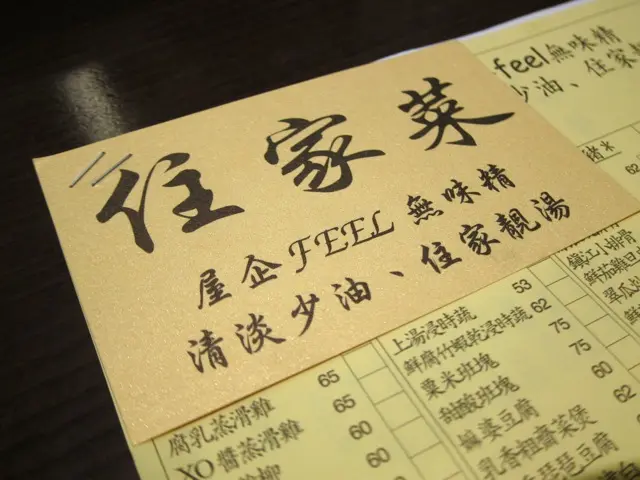 住家菜
屋企FEEL無味精
清淡少油、住家靚湯
feel無味精
少油、住家
62
上湯浸時蔬 53
鮮腐竹蝦乾浸時蔬 62
粟米班塊 75
甜酸班塊 75
麻婆豆腐 60
乳香粗齋菜煲 62
琵琶豆腐
鐵江小排骨
腐乳蒸滑雞 65
XO醬蒸滑雞 65
60
60